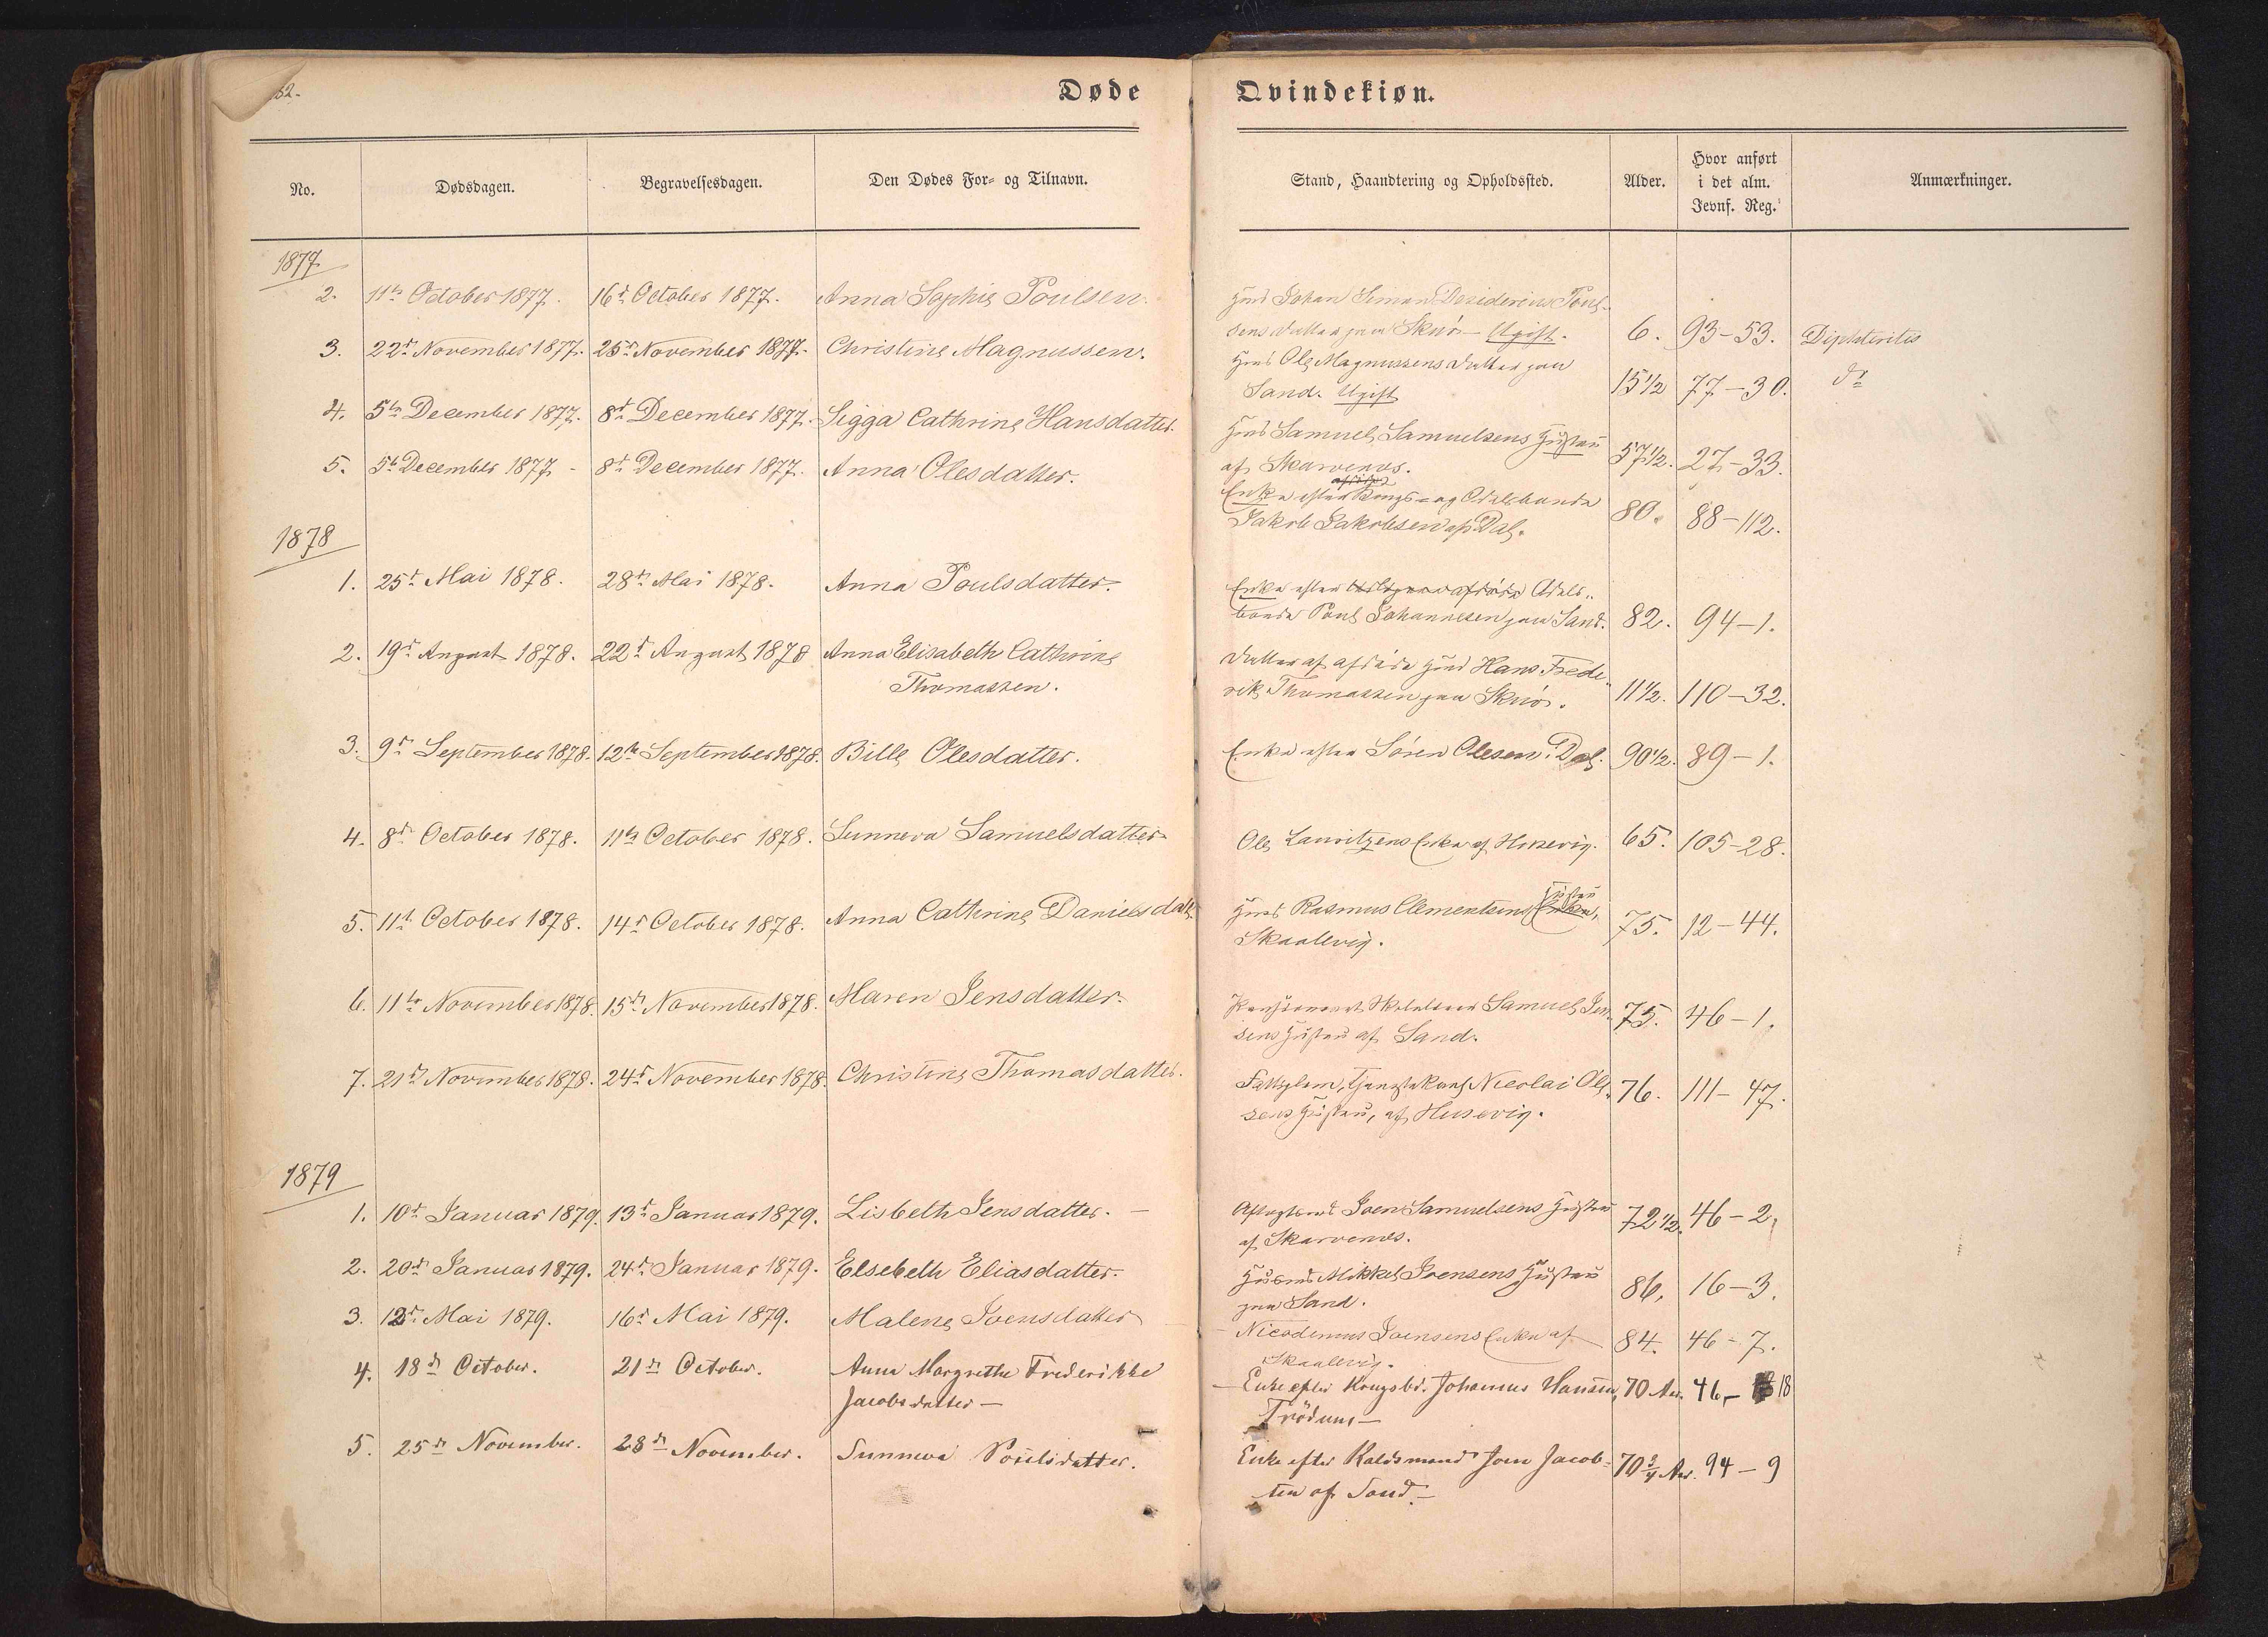 52.
Døde
Qvindekiøn.
No.
Dødsdagen.
Begravelsesdagen.
Den Dødes For- og Tilnavn.
Stand, Haandtering og Opholdssted.
Alder.
Hvor anført
i det alm.
Jevnf. Reg.
Anmærkninger.
1877
2. 11te October 1877. 16d. October 1877. Anna Sophie Poulsen.
Huusmd Johan Simon Desiderius Poul-
sens Datter paa Skuø. Ugift. 6. 93-53. Diphteritis
3. 22d November 1877. 25d November 1877. Christine Magnussen.
Ole Magnussens Datter paa
Sand. Ugift 15 1/2 77-30. do
4. 5te December 1877. 8d December 1877. Sigga Cathrine Hansdatter.
Samuel Samuelsens Hustru
af Skarvenæs. 57 1/2. 27-33.
5. 5te December 1877 - 8d December 1877. Anna Olesdatter.
Enke efter Kongs- og Odelsbonde
Jakob Jakobsen af Dal. 80. 88-112.
1878
1. 25d Mai 1878. 28d Mai 1878. Anna Poulsdatter.
Enke efter afdøde Odels-
bonde Poul Johannesen paa Sand. 82. 94-1.
2. 19d August 1878. 22d August 1878 Anna Elisabeth Cathrine
Thomassen.
Datter af afdøde Hans Frede-
rik Thomassen paa Skuø. 11 1/2. 110-32.
3. 9d September 1878. 12te September 1878. Bille Olesdatter.
Enke efter Søren Olesen, Dal. 90 1/2. 89-1.
4. 8d October 1878. 11te October 1878. Sunneva Samuelsdatter
Ole Lauritzens Enke af Husevig. 65. 105-28.
5. 11te October 1878. 14d October 1878. Anna Cathrine Danielsdatt.
Hustru
Rasmus Clementsens Enke,
Skaalevig. 75. 12-44.
6. 11te November 1878. 15d November 1878. Maren Jensdatter.
Samuel Jen-
sens Hustru af Sand. 75. 46-1.
7. 21d November 1878. 24d November 1878. Christine Thomasdatter.
Fattiglem, Nicolai Ole-
sens Hustru, af Husevig. 76. 111-47.
1879
1. 10d Januar 1879. 13d Januar 1879. Lisbeth Jensdatter. -
Aftægtsmd Joen Samuelsens Hustru
af Skarvenæs. 72 1/2. 46-2.
2. 20d Januar 1879. 24d Januar 1879. Elsebeth Eliasdatter.
Huusmd. Mikkel Joensens Hustru
paa Sand. 86. 16-3.
3. 12d. Mai 1879. 16d Mai 1879. Malene Joensdatter
- Nicodemus Joensens Enke af
Skaalevig. 84. 46-7.
4. 18d October. 21d October. Anna Margrethe Frederikke
Jacobsdatter -
- Enke efter Kongsbd. Johannes Hansen, 70 Aar. 46-18
Trödum -
5. 25d November. 28d November. Sunneva Poulsdatter.
Enke efter Joen Jacob-
sen af Sand. - 70 3/4 Aar. 94-9